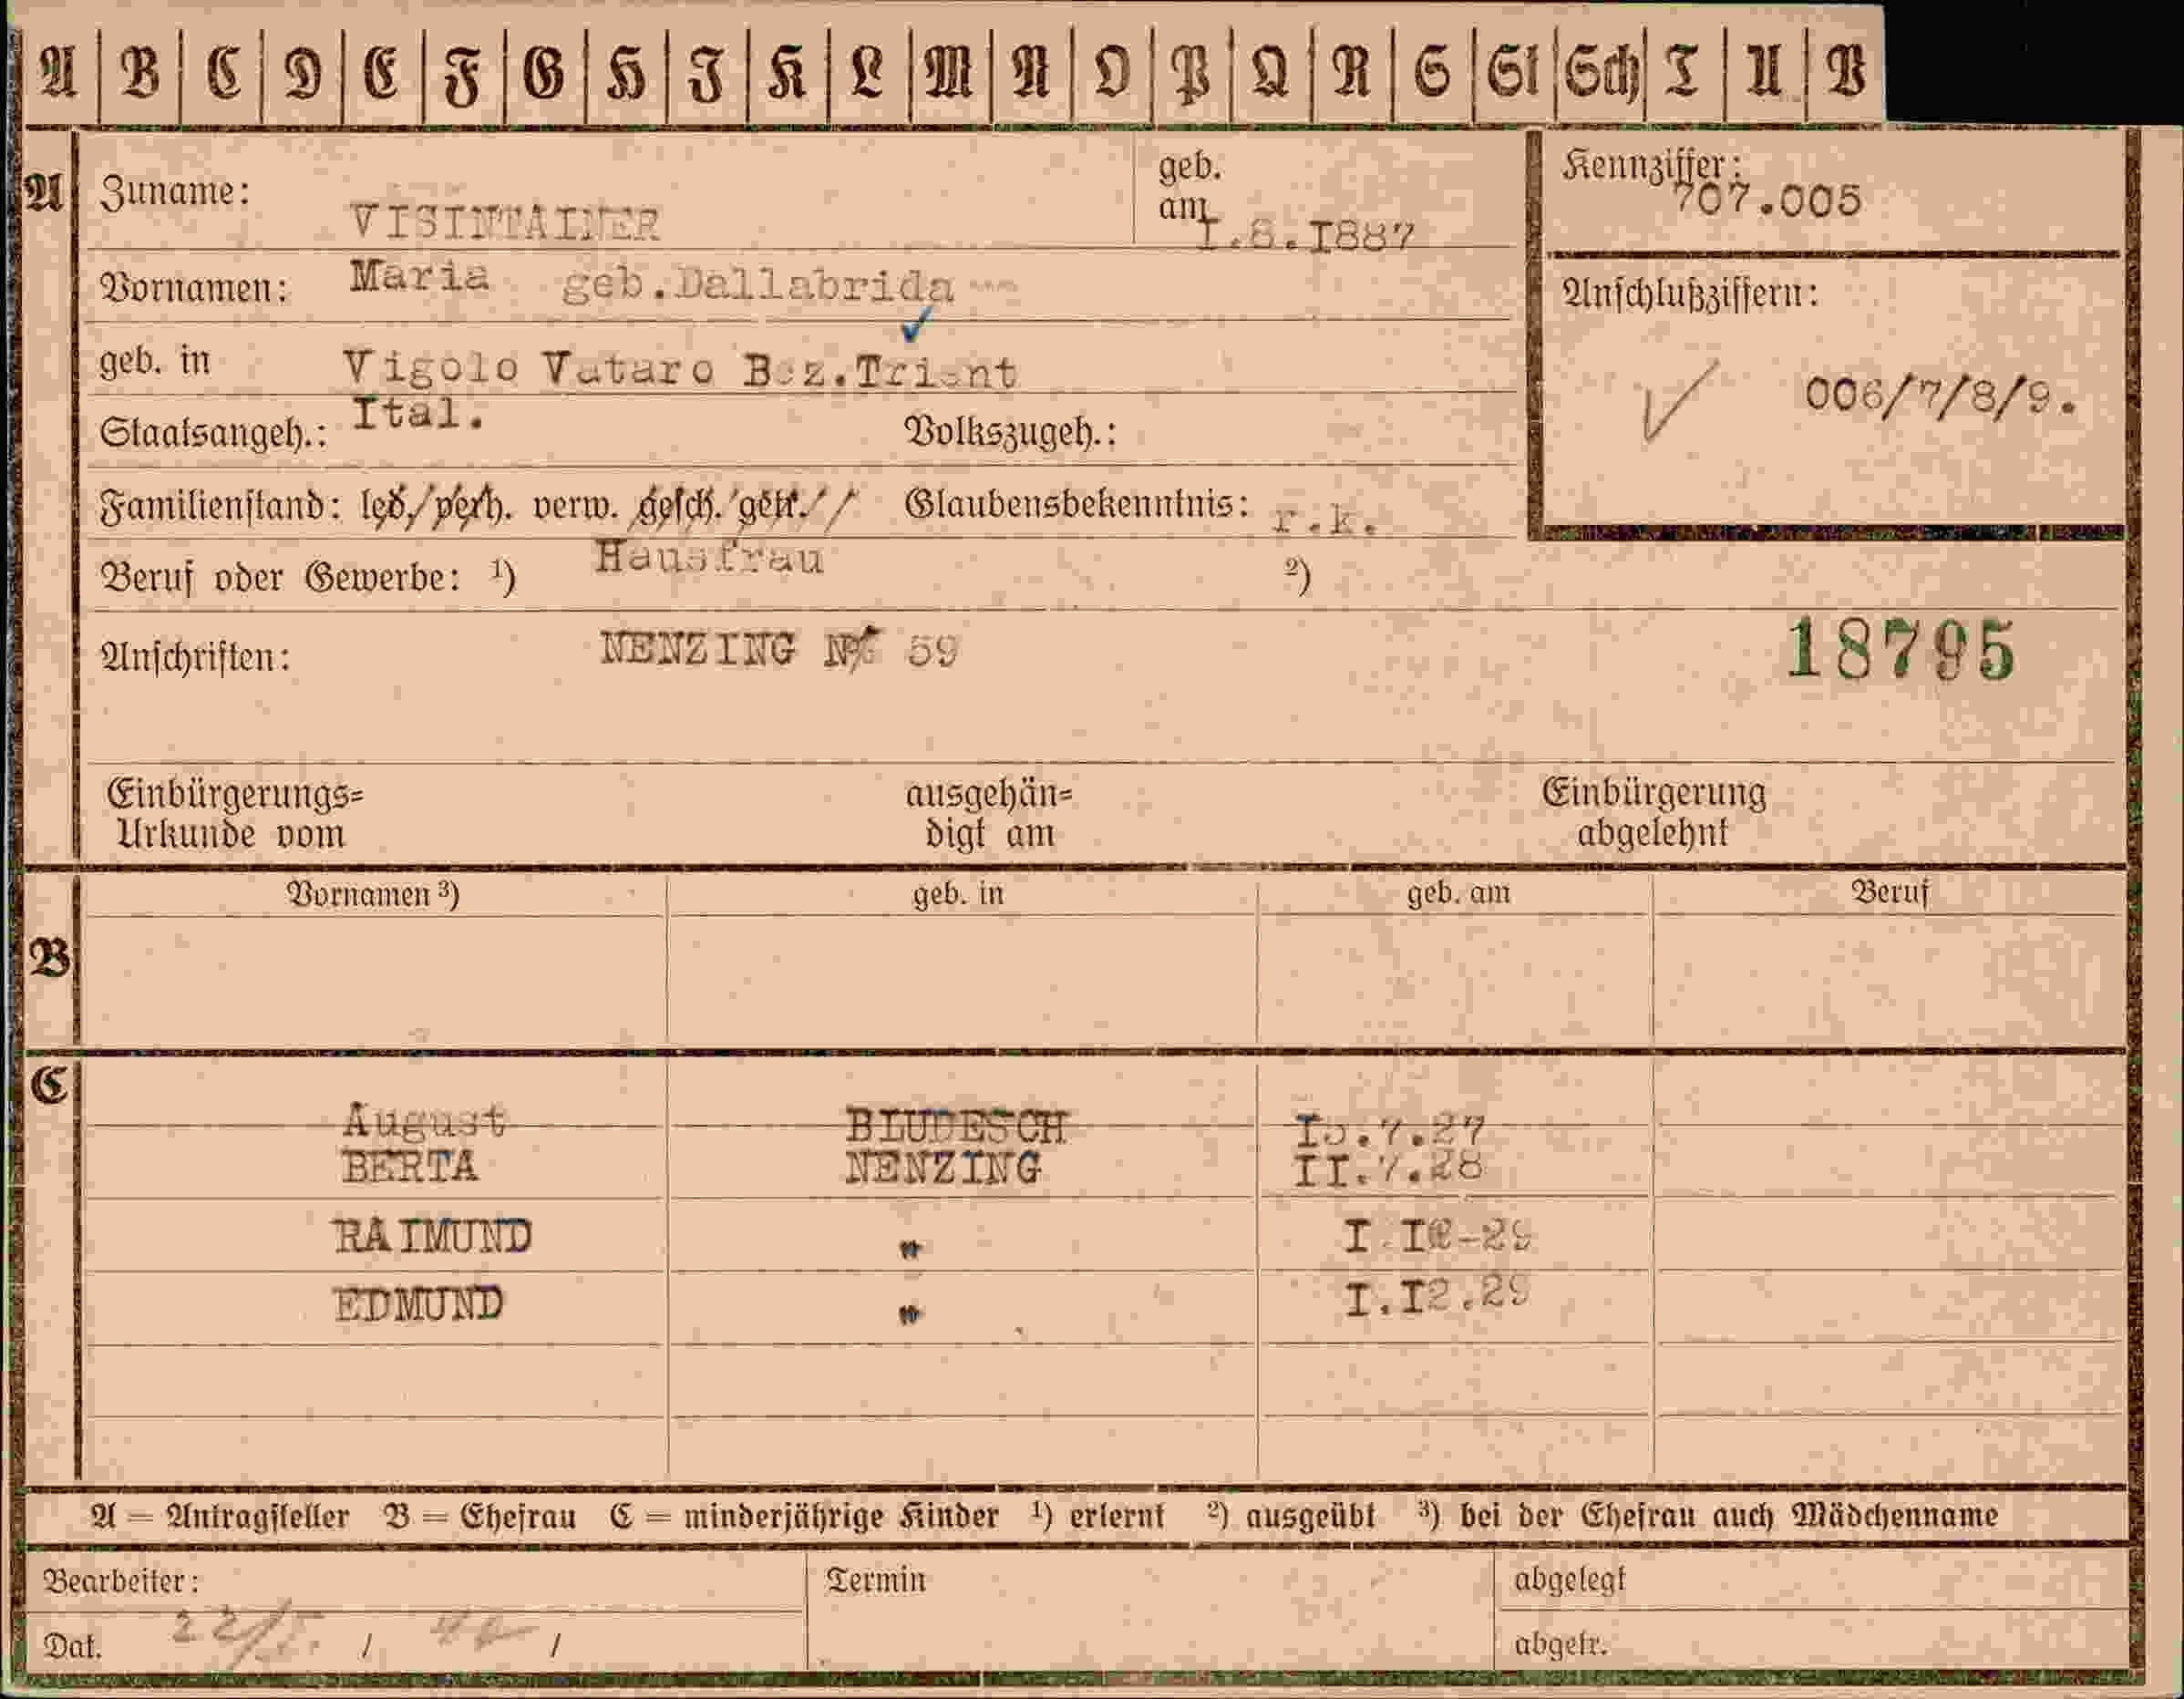 A B C D E F G H J K L M N O P Q R S St Sch T U V
A Zuname: VISINTAINER geb. am I.8.I887
Kennziffer: 707.005
Vornamen: Maria geb.Dallabrida
Anschlußziffern:
geb. in Vigolo Vataro Bez.Trient
006/7/8/9.
Staatsangeh.: Ital. Volkszugeh.:
Familienstand: led. verh. verw. gesch. getr. Glaubensbekenntnis: r.k.
Beruf oder Gewerbe: ¹) Hausfrau ²)
Anschriften: NENZING 59
18795
Einbürgerungs= ausgehän= Einbürgerung
Urkunde vom digt am abgelehnt
Vornamen ³) geb. in geb. am Beruf
B
C
August BLUDESCH .7.27
BERTA NENZING II.7.28
RAIMUND " I.I2-29
EDMUND " I.I2.29
A = Antragsteller B = Ehefrau C = minderjährige Kinder ¹) erlernt ²) ausgeübt ³) bei der Ehefrau auch Mädchenname
Bearbeiter: Termin abgelegt
Dat. 22/ / / abgetr.